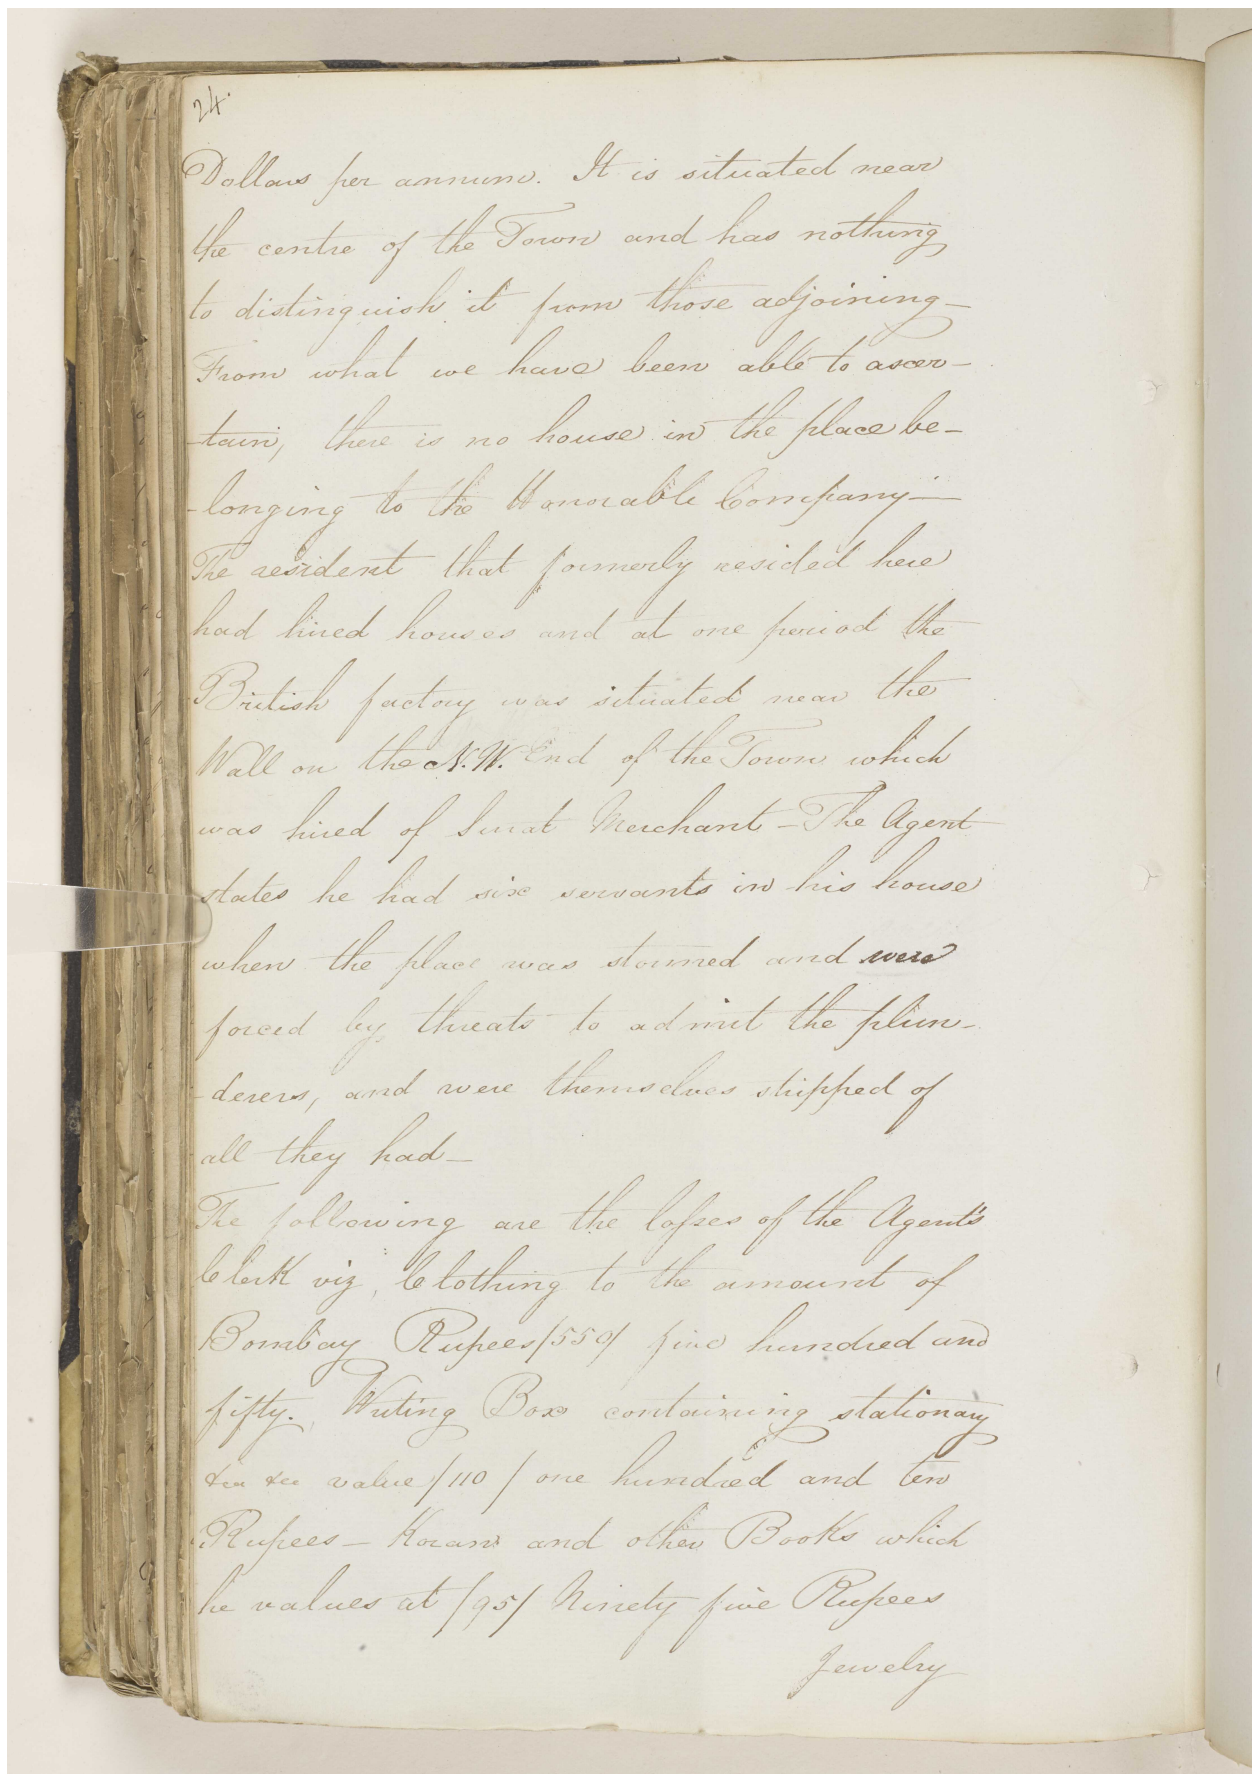 24.
Dollars per annum. It is situated near
the centre of the Town and has nothing
to distinguish it from those adjoining_
From what we have been able to ascer-
-tain, there is no house in the place be-
-longing to the Honorable Company_
The resident that formerly resided here
had hired houses and at one period the
British factory was situated near the
Wall on the N.W. End of the Town which
was hired of Surat Merchant_The Agent
states he had six servants in his house
when the place was stormed and were
forced by threats to admit the plun-
-derers, and were themselves stripped of
all they had_
The following are the losses of the Agent's
Clerk viz, Clothing to the amount of
Bombay Rupees/550/ five hundred and
fifty. Writing Box containing stationary
&ca &ca value /110/ one hundred and ten
Rupees_ Koran and other Books which
he values at /95/ Ninety five Rupees
Jewelry